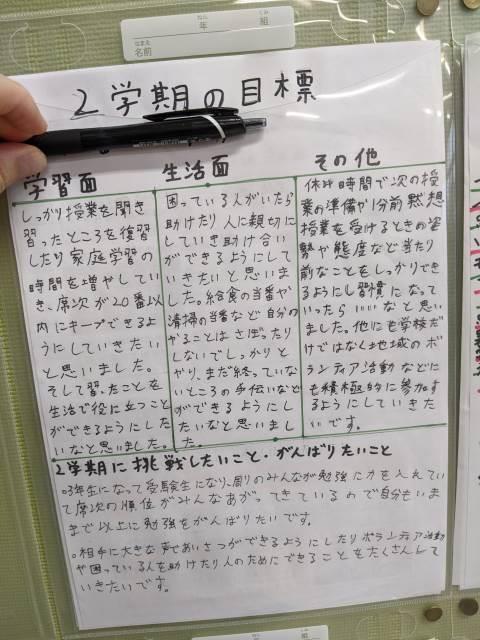 ねん くみ
年 組
なまえ
名前
2学期の目標
学習面
しっかり授業を聞き
習ったところを復習
したり家庭学習の
時間を増やしてい
き、席次が20番以
内にキープできるよ
うにしていきたい
と思いました。
そして習ったことを
生活で役に立つこと
ができるようにした
いなと思いました。
生活面
困っている人がいたら
助けたり人に親切に
していき助け合い
ができるようにして
いきたいと思いまし
た。給食の当番や
清掃の当番など自分の
やることはさぼったり
しないでしっかりと
やり、まだ終っていな
いところの手伝いなど
ができるようにし
たいなと思いまし
た。
その他
休み時間で次の授
業の準備や1分前黙想
授業を受けるときの姿
勢や態度など当たり
前なことをしっかりでき
るようにし習慣になって
いったらいいなと思い
ました。他にも学校だ
けではなく地域のボ
ランティア活動などに
も積極的に参加す
るようにしていきた
いです。
2学期に挑戦したいこと・がんばりたいこと
○3年生になって受験生になり、周りのみんなが勉強に力を入れてい
て席次の順位がみんなあがってきているので自分もいま
まで以上に勉強をがんばりたいです。
○相手に大きな声であいさつができるようにしたりボランティア活動
や困っている人を助けたり人のためにできることをたくさんして
いきたいです。
ねん くみ
年 組